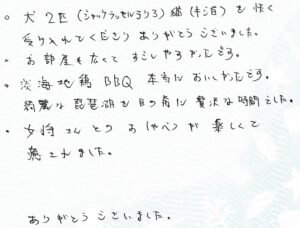 ・犬2匹(ジャックラッセルテリア) 猫(キジ白)を快く
受け入れてくださりありがとうございました。
・お部屋も広くてすごしやすかったです。
・淡海地鶏BBQ 本当においしかったです。
綺麗な琵琶湖を目の前に贅沢な時間でした。
・女将さんとのおしゃべりが楽しくて
癒されました。
ありがとうございました。